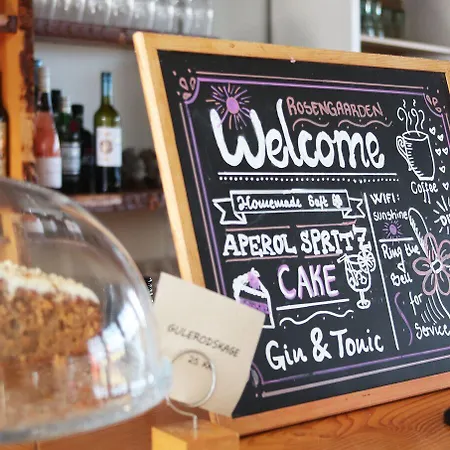 ROSENGAARDEN
Welcome
Homemade Saft
APEROL SPRITZ
CAKE
Gin & Tonic
Coffee
WIFI:
sunshine
Ring the
bell
for
Service
GULERODSKAGE
25 kr